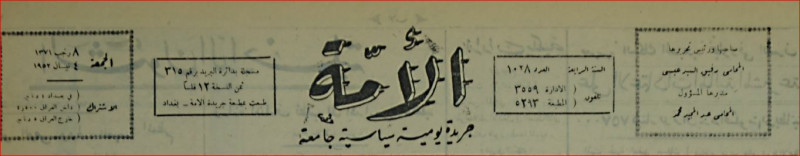 صاحبها ورئيس تحريرها
المحامي رفيق السيد عيسى
مديرها المسؤول
المحامي عبد المجيد محمد
السنة الرابعة العدد ١٠٢٨
تلفون الادارة ٣٥٥٩
المطبعة ٥٢٩٣
الأمة
جريدة يومية سياسية جامعة
مسجلة بدائرة البريد برقم ٣١٥
ثمن النسخة ١٢ فلساً
طبعت بمطبعة جريدة الامة - بغداد
الجمعة
٨ رجب ١٣٧١
٤ نيسان ١٩٥٢
الاشتراك
في بغداد ٤ دنانير
خارج العراق ٥ دنانير